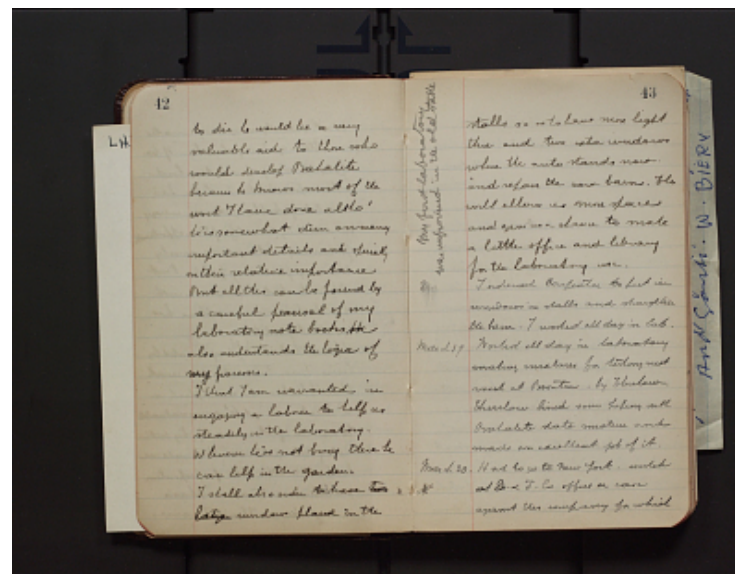 42
to die he would be a very
valuable aid to those who
would develop Bakelite
because he knows most of the
work I have done altho'
he is somewhat on many
important details and
on their relative importance
But all this can be found by
a careful perusal of my
laboratory note books. He
also understands the logic of
my process.
I think I am warranted in
engaging a laborer to help us
steadily in the laboratory.
Whenever he is not busy there he
can help in the garden.
I shall also order to have two
large window placed in the
My first laboratory
was improvised in the old stable
43
stalls so as to have more light
there and two extra windows
where the auto stands now
and repair the cow barns. This
will allow us more space
and give us a chance to make
a little office and library
for the laboratory use.
I ordered Carpenter to put in
windows in stalls and straighten
the barn. I worked all day in lab.
March 19. Worked all day in laboratory
making mixtures for testing next
week at Boonton. by Thurlow.
Thurlow hired some helping with
Bakelite mixture and
made an excellent job of it.
March 20. Had to go to New York.
at office in case
against the company for which
L.H.
W. BIERY